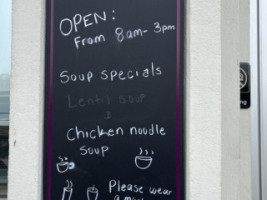 OPEN:
From 8am-3pm
Soup specials
Lentil soup
Chicken noodle
soup
Please wear
a mask